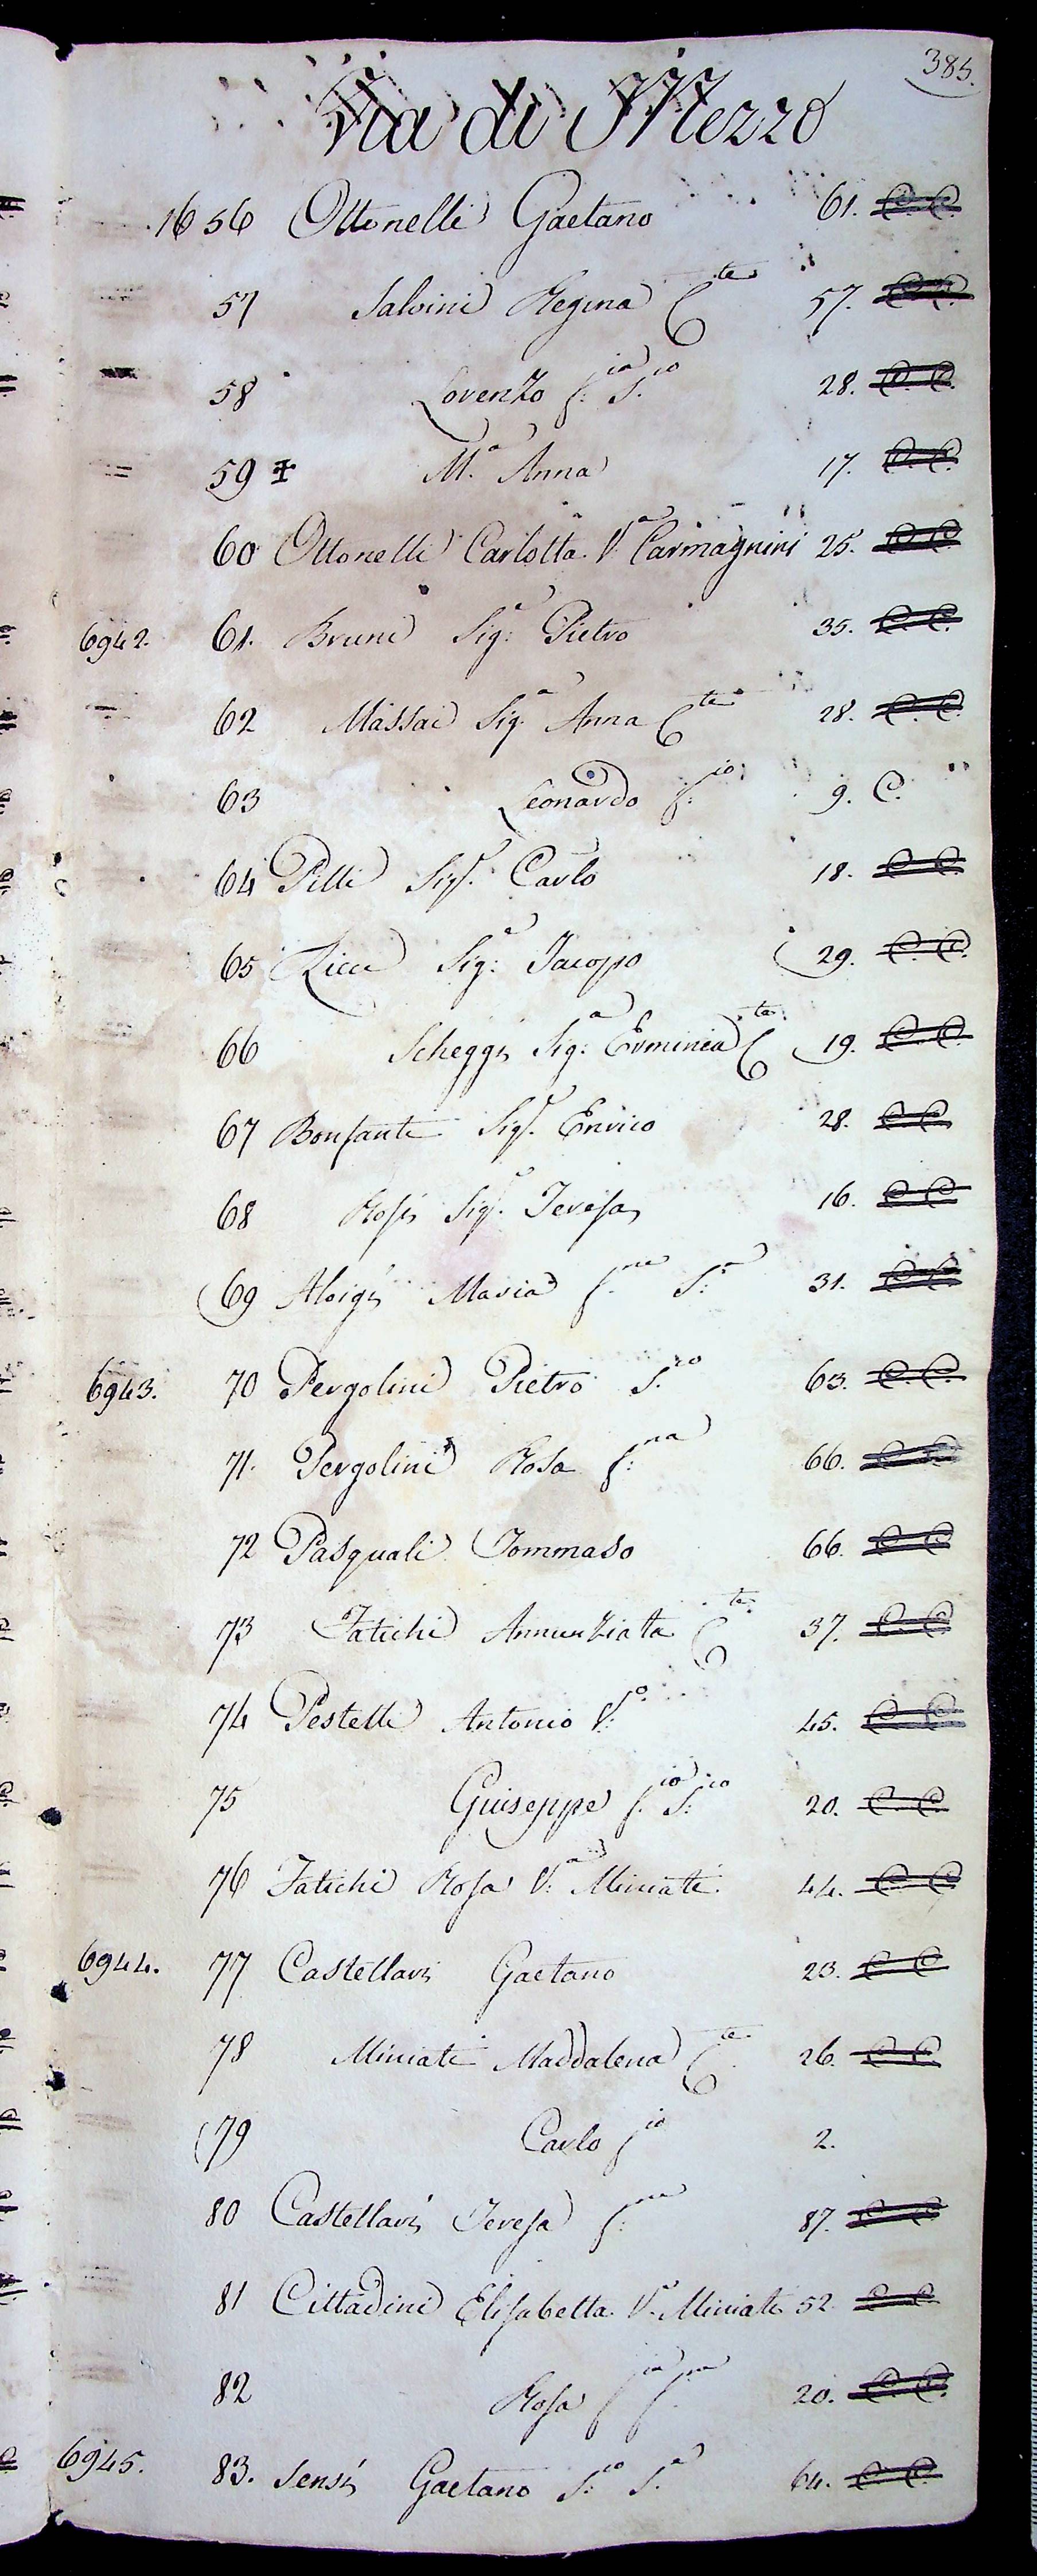 385.
Via di Mezzo
1656 Ottonelli Gaetano 61. C. C.
57 Salvini Regina C.te 57. C. C.
58 Lorenzo f.io S.io 28. C. C.
59 M.a Anna 17. C. C.
60 Ottonelli Carlotta V.a Carmagnini 25. C. C.
6942. 61. Bruni Sig.r Pietro 35. C. C.
62 Massai Sig.a Anna C.te 28. C. C.
63 Leonardo f.io 9. C.
64 Pilli Sig.r Carlo 18. C. C.
65 Ricci Sig.r Jacopo 29. C. C.
66 Scheggi Sig.a Erminia C.te 19. C. C.
67 Bonfanti Sig.r Enrico 28. C. C.
68 Rosi Sig.a Teresa 16. C. C.
69 Aloigi Maria f.na S.a 31. C. C.
6943. 70 Pergolini Pietro S.ro 63. C. C.
71. Pergolini Rosa f.na 66. C. C.
72 Pasquali Tommaso 66. C. C.
73 Fatichi Annunziata C.te 37. C. C.
74 Pestelli Antonio V.o 45. C. C.
75 Giuseppe f.io S.io 20. C. C.
76 Fatichi Rosa V.a Miniati 44. C. C.
6944. 77 Castellari Gaetano 23. C. C.
78 Miniati Maddalena C.te 26. C. C.
79 Carlo f.io 2.
80 Castellari Teresa f.na 87. C. C.
81 Cittadini Elisabetta V.a Miniati 52. C. C.
82 Rosa f.ia f.na 20. C. C.
6945. 83. Sensi Gaetano S.io S.a 64. C. C.